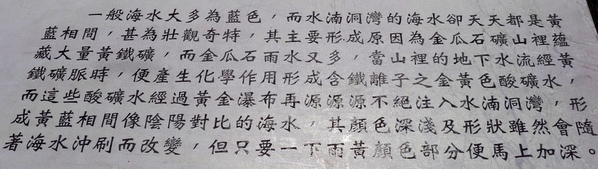 一般海水大多為藍色，而水湳洞灣的海水卻天天都是黃
藍相間，甚為壯觀奇特，其主要形成原因為金瓜石礦山裡蘊
藏大量黃鐵礦，而金瓜石雨水又多，當山裡的地下水流經黃
鐵礦脈時，便產生化學作用形成含鐵離子之金黃色酸礦水，
而這些酸礦水經過黃金瀑布再源源源不絕注入水湳洞灣，形
成黃藍相間像陰陽對比的海水，其顏色深淺及形狀雖然會隨
著海水沖刷而改變，但只要一下雨黃顏色部分便馬上加深。